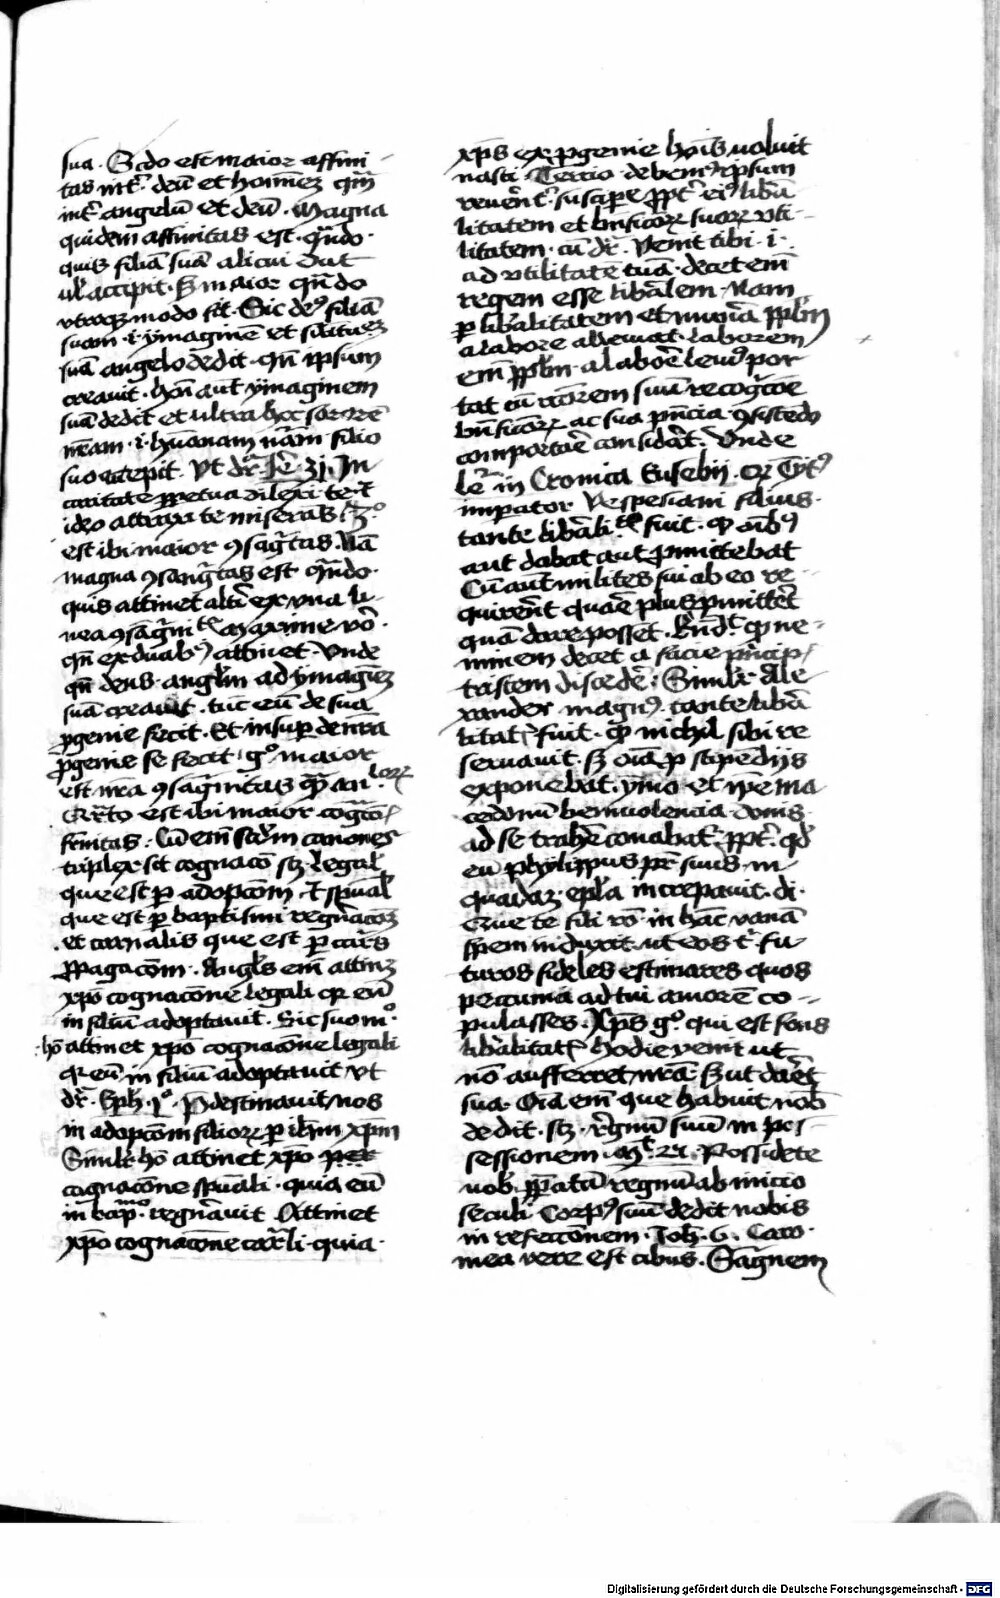 sua. Scdo est maior affini-
tas int̄ deū et hoīnez qm̄
int̄ angelū et deū. Magna
quidem affinitas est. qn̄do.
quis filiā suā alicui dat
ul̄ accipit. Sʒ maior qn̄do
utroqʒ modo fit. Sic deꝰ filiā
suam .i. ymaginē et silitudꝫ
suā angelo dedit. qn̄ ipsum
creauit. hoī aūt ymaginem
suā dedit et ultra hoc sororē
nr̄am .i. hūanam nām filio
suo accepit. Vt dr̄ Je. 31. In
caritate ꝑpetua dilexi te. ⁊
ideo attraxi te miserās. 3º
est ibi maior ꝯsāgtas. Nā
magna ꝯsangtas est qn̄do.
quis attinet altī ex una li-
nea ꝯsāgnitᵗᵉ. maxime vō.
qn̄ ex duabꝰ attinet. Unde
qn̄ deus. angl̄m ad ymagīez
suā creauit. tūc eū de sua
ꝓgenie fecit. Et insuꝑ de nrā
ꝓgenie se fecit. gº maior
est nrā ꝯsāgnitas qꝫ an-loꝝ
Qrto est ibi maior cogcōis
fr̄nitas. Cū em̄ scdm̄ canones
triplex sit cognacō sꝫ legal̄
que est ꝑ adopcōm. ⁊ spūal̄
que est ꝑ baptismi regn̄acōꝫ
et carnalis que est ꝑ carīs
ꝓpagacōm. Angl̄s em̄ attinꝫ
xp̄o cognacōne legali qꝛ eū
in filiū adoptauit. Sic suo mº.
hō attinet xp̄o cognacōne legali
qꝛ eū in filiū adoptauit vt
dr̄. Eph. 1º. Pdestinauit nos
in adopcōm filioꝝ ꝑ ih̄m xp̄m
Similr̄ hō attinet xp̄o
cognacōne spūali. quia eū
in bapᵐº. regn̄auit Attinet
xp̄o cognacōne carli. quia.
xp̄s ex ꝓgenie hoīs uoluit
nasci. Tercio debemꝰ ipsum
reuēnt̄. suscipe ꝓpt̄ eiꝰ libā
litatem et bn̄ficioꝝ suoꝝ uti-
litatem. cū dr̄. Venit tibi .i.
ad utilitatē tuā. decet em̄
regem esse libālem. Nam
ꝑ libālitatem et munā ppl̄m
a labore alleuiat. laborem
em̄ ppl̄m. a laboē leuiꝰ por
tat cū rcōrem suū recogcōe
bn̄ficioꝝ ac sua pn̄cia ꝯsistēdo
comportāe considāt. Unde
le. in Cronica Eusebij. qꝛ Tytꝰ
imꝑator Vespesiani filius.
tante libāliᵗᵉ fuit. qꝫ oībꝰ
aut dabat aut ꝓmittebat
Cū aūt milites sui ab eo re-
quirēnt quāe plus ꝓmittēt
quā dare posset. Rn̄dt. qꝫ ne-
minem decet a facie pn̄cip̄
tristem discedē. Similr̄ Ale-
xander magnꝰ. tante libā
litatꝭ fuit. qꝫ nichil sibi re
seruauit. sʒ oīa ꝓ stipendijs
exponebat. ymo et ip̄e ma
cedonū beniuolencia donis.
ad se trahē conabat. ꝓpt̄. qd
eū phylippus pr̄ suus in
quadaꝫ epl̄a increpauit. di.
Que te fili rō in hāc vanā
spem induxit. ut eos t̄. fu
turos fideles estimares quos
peccunia ad tui amorē co-
pulasses. Xp̄s gº. qui est fons
libālitatꝭ hodie venit ut
nō aufferret nrā. sʒ ut daret
sua. Oīa em̄ que habuit nob̄
dedit. sꝫ. regnū suū in pos-
sessionem. Mt. 25. Possidete
uob̄ ꝑatū regnū ab inicio
seculi. Corpꝰ suū dedit nobis
in refeccōnem. Joh. 6. Caro.
mea vere est cibus. Sāgnem
Digitalisierung gefördert durch die Deutsche Forschungsgemeinschaft · DFG